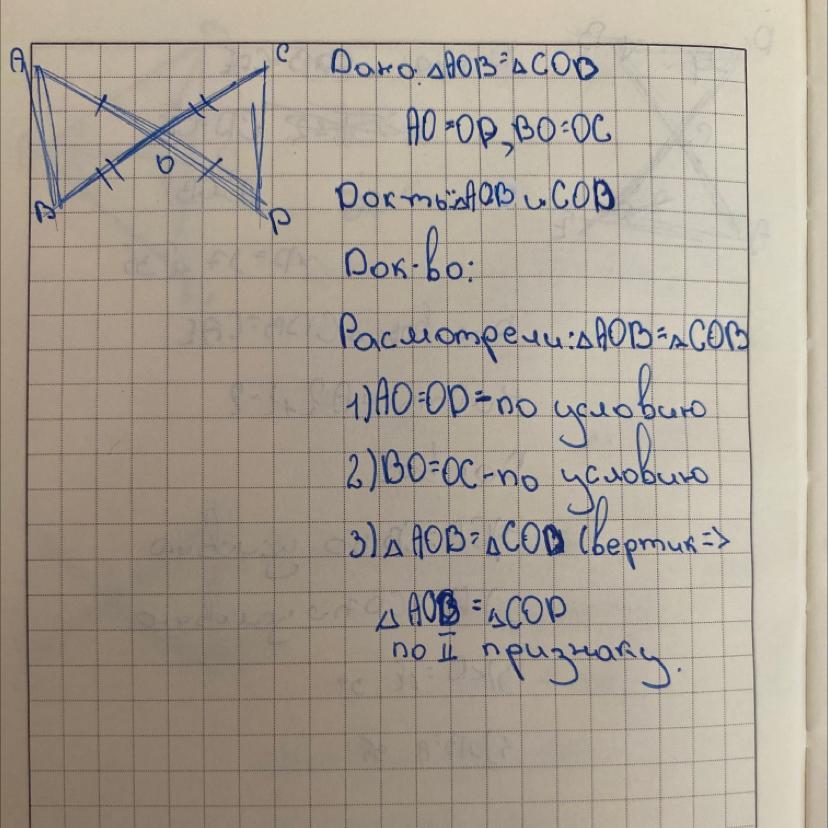 A
C
B
O
D
Дано: △AOB=△COD
AO=OD, BO=OC
Док-ть: △AOB и COD
Док-во:
Расмотрели: △AOB=△COB
1) AO=OD - по условию
2) BO=OC - по условию
3) △AOB=△COD (вертик =>
△AOB=△COD
по II признаку.